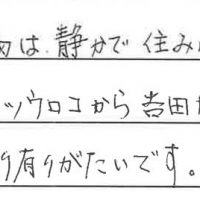 は静かで住み
ツウロコから吉田
り有りがたいです。